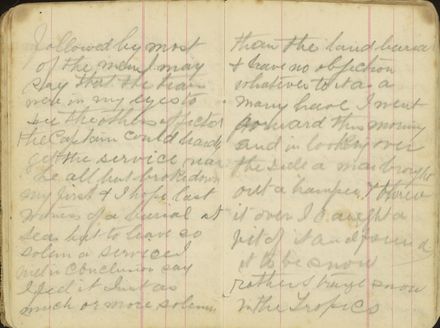 followed by most
of the men I may
say that the tears
were in my eyes to
see the others affected
the Captain could hardly
get the service read
he all but broke down
my first & I hope last
witness of a burial at
sea but to leave so
solemn a service I
will in conclusion say
I feel it Just as
much or more solemn
than the land burial
& have no objection
whatever to it as a
many have I went
forward this morning
and in looking over
the side a man brought
out a hamper & threw
it over I caught a
bit of it and found
it to be snow
rather strange snow
in the Tropics